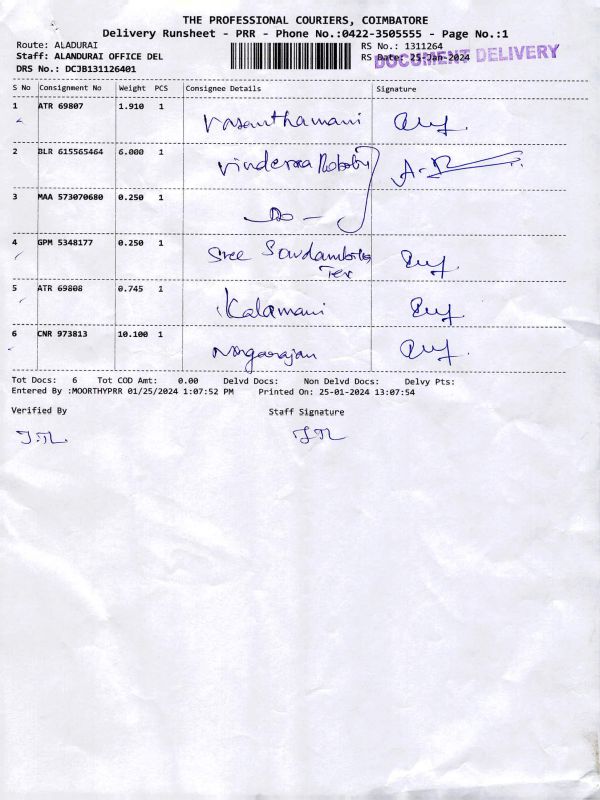 THE PROFESSIONAL COURIERS, COIMBATORE
Delivery Runsheet - PRR - Phone No.:0422-3505555 - Page No.:1
Route: ALADURAI
RS No.: 1311264
Staff: ALANDURAI OFFICE DEL
RS Date: 25-Jan-2024
DOCUMENT DELIVERY
DRS No.: DCJB131126401
S No Consignment No Weight PCS Consignee Details Signature
1 ATR 69807 1.910 1 Vasanthamani
2 BLR 615565464 6.000 1
3 MAA 573070680 0.250 1
4 GPM 5348177 0.250 1 Sree
Tex
5 ATR 69808 0.745 1 Kalamani
6 CNR 973813 10.100 1
Tot Docs: 6 Tot COD Amt: 0.00 Delvd Docs: Non Delvd Docs: Delvy Pts:
Entered By :MOORTHYPRR 01/25/2024 1:07:52 PM Printed On: 25-01-2024 13:07:54
Verified By Staff Signature